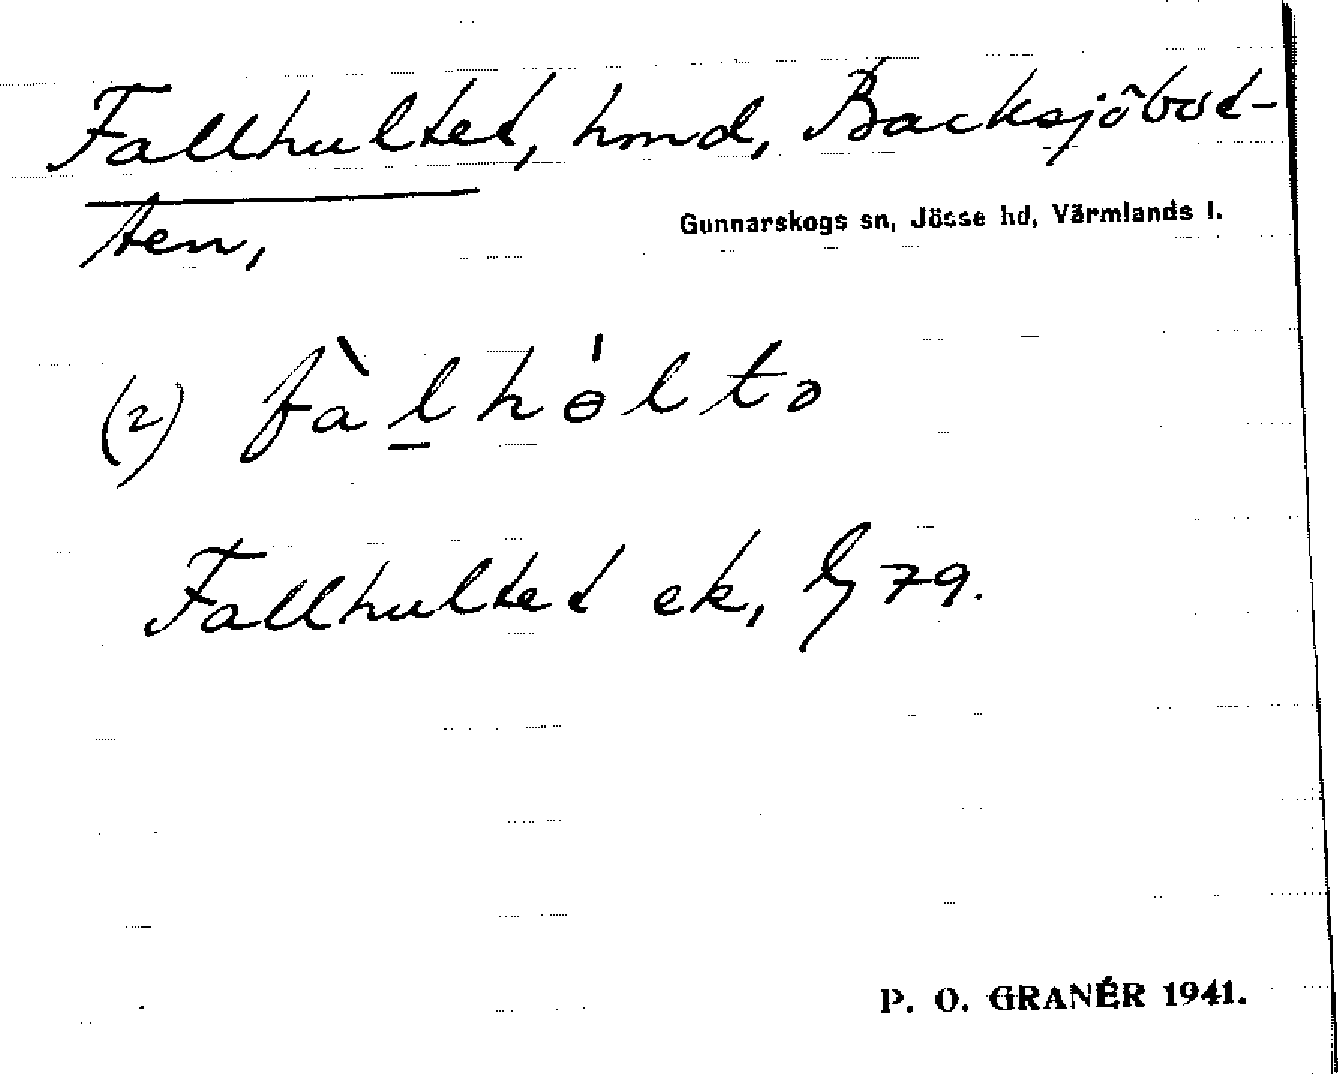 Fallhultet, hmd, Backsjöbot-
ten,
Gunnarskogs sn, Jösse hd, Värmlands l.
(2) fàlhɵ́ltə
Fallhultet ek, G 79.
P. O. GRANÉR 1941.